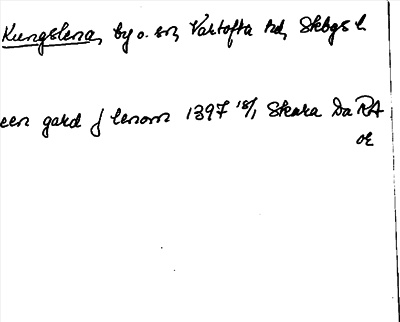 Kungslena, by o. sn, Vartofta hd, Skbgs l.
een gard j lenom 1397 18/1 Skara Da RA
OE